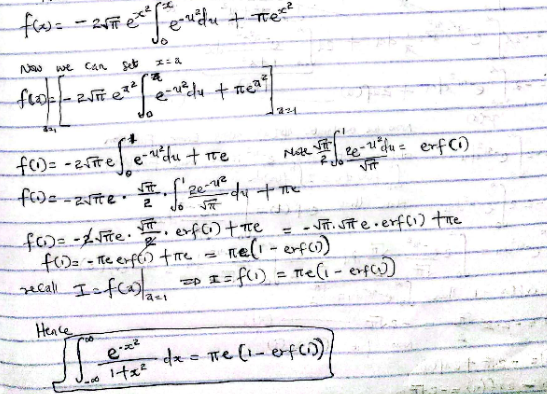 f(x) = - 2√π e^{x²} ∫_0^x e^{-u²} du + πe^{x²}
Now we can set x=a
f(a)|_{a=1} = [- 2√π e^{a²} ∫_0^a e^{-u²} du + πe^{a²}]_{a=1}
f(1) = - 2√π e ∫_0^1 e^{-u²} du + πe
Note √π/2 ∫_0^1 2e^{-u²}/√π du = erf(1)
f(1) = - 2√π e · √π/2 · ∫_0^1 2e^{-u²}/√π du + πe
f(1) = - 2√π e · √π/2 · erf(1) + πe = - √π · √π e · erf(1) + πe
f(1) = - πe erf(1) + πe = πe(1 - erf(1))
recall I = f(a)|_{a=1} => I = f(1) = πe(1 - erf(1))
Hence
∫_{-∞}^{∞} e^{-x²}/(1+x²) dx = πe (1 - erf(1))